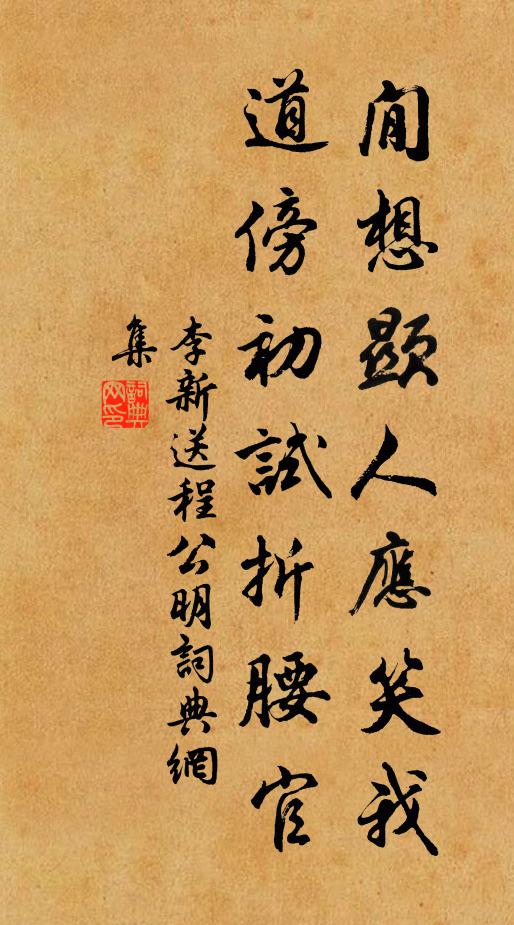 閒想顯人應笑我
道傍初試折腰官
李新送程公明詞典網
集
詞典
网印